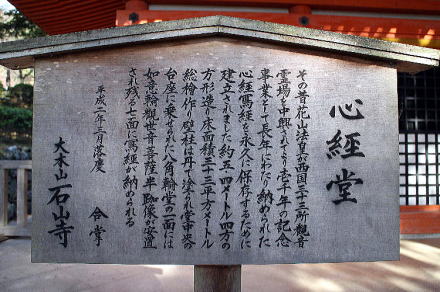 心経堂
その昔花山法皇が西国三十三所観音
霊場を中興されてより壱千年の記念
事業として長年にわたり納められた
心経写経を永久に保存するために
建立されました約五・四メートル四方の
方形造り床面積三十三平方メートル
総檜作り壁柱は丹で塗られ堂中央の
台座に乗せられた八角輪堂の一面には
如意輪観世音菩薩半跏像が安置
され残る七面に写経が納められる
平成二年三月落慶 合掌
大本山 石山寺